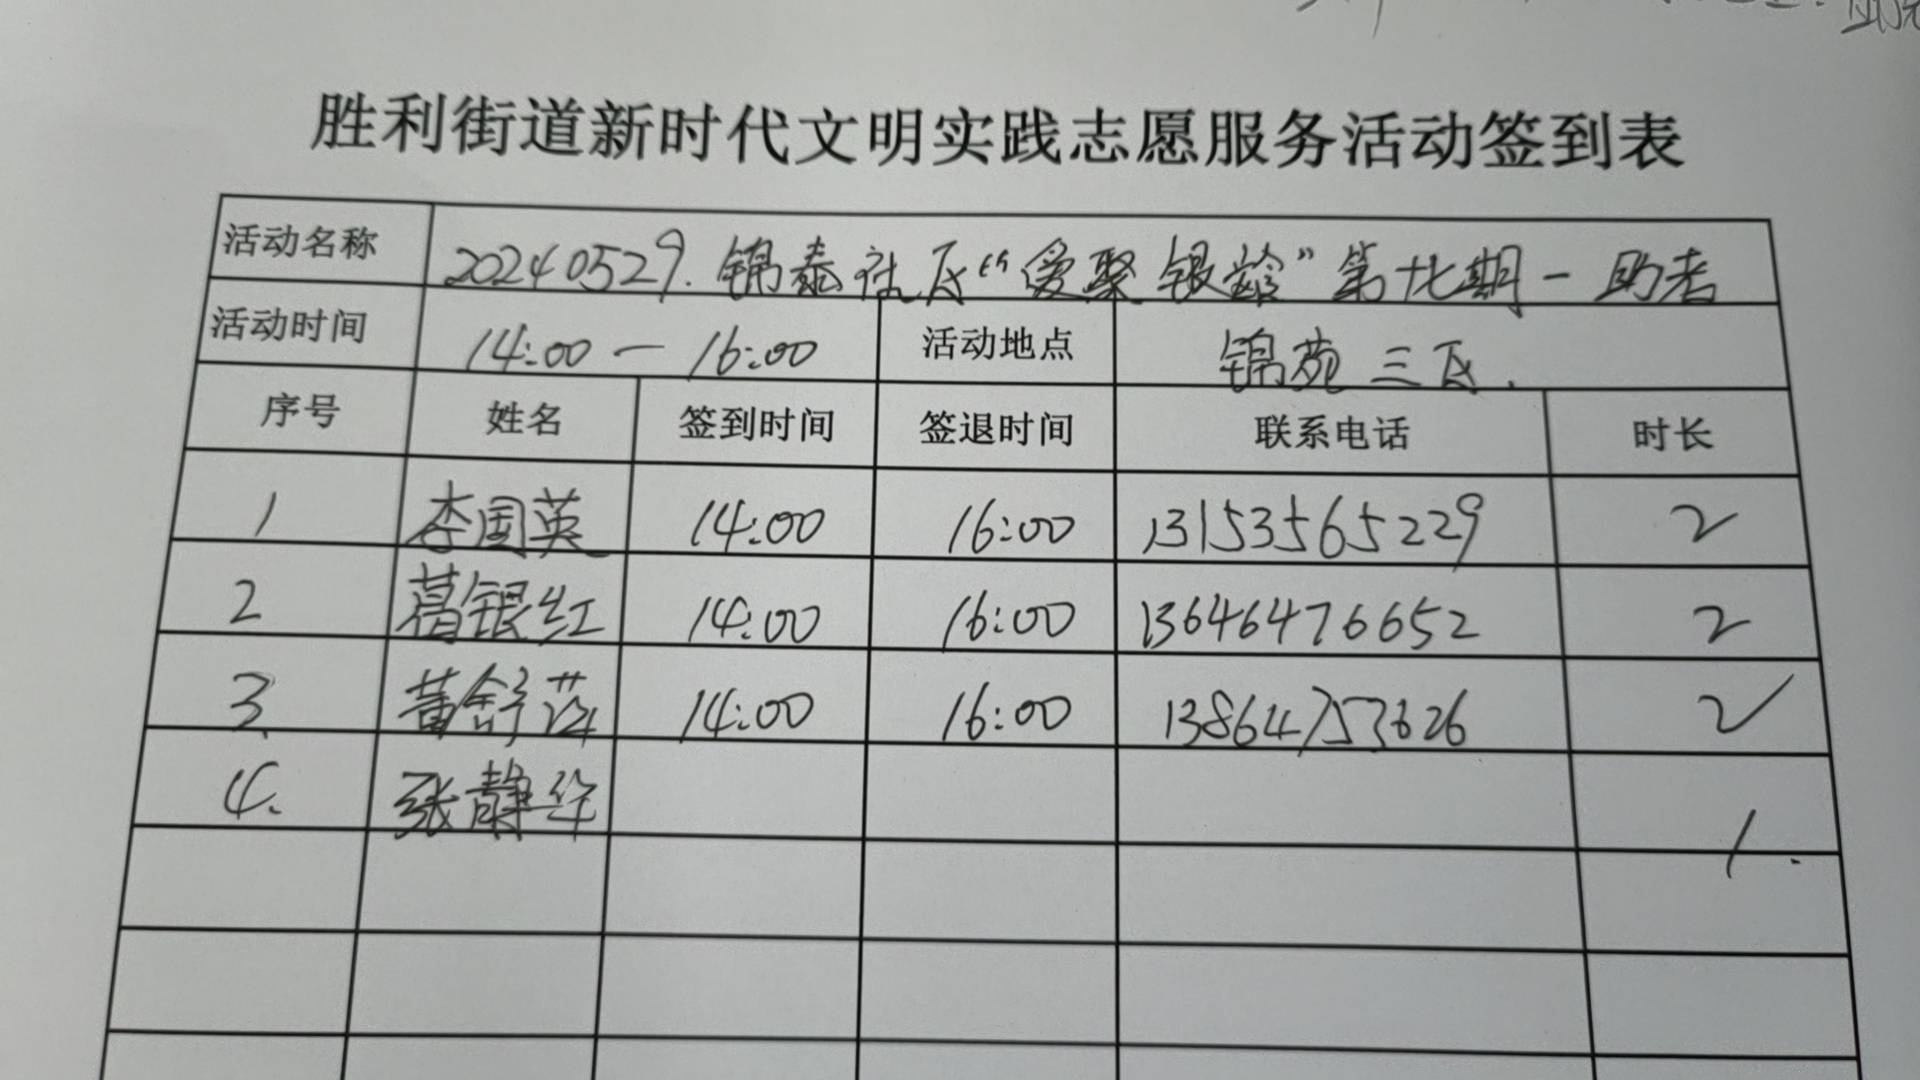 胜利街道新时代文明实践志愿服务活动签到表
活动名称 20240529.锦泰社区“爱聚银龄”第廿期-助老
活动时间 14:00 — 16:00 活动地点 锦苑三区.
序号 姓名 签到时间 签退时间 联系电话 时长
1 李国英 14:00 16:00 13153565229 2
2 葛银红 14:00 16:00 13646476652 2
3. 黄舒 14:00 16:00 13864753626 2
4. 张静华 1.